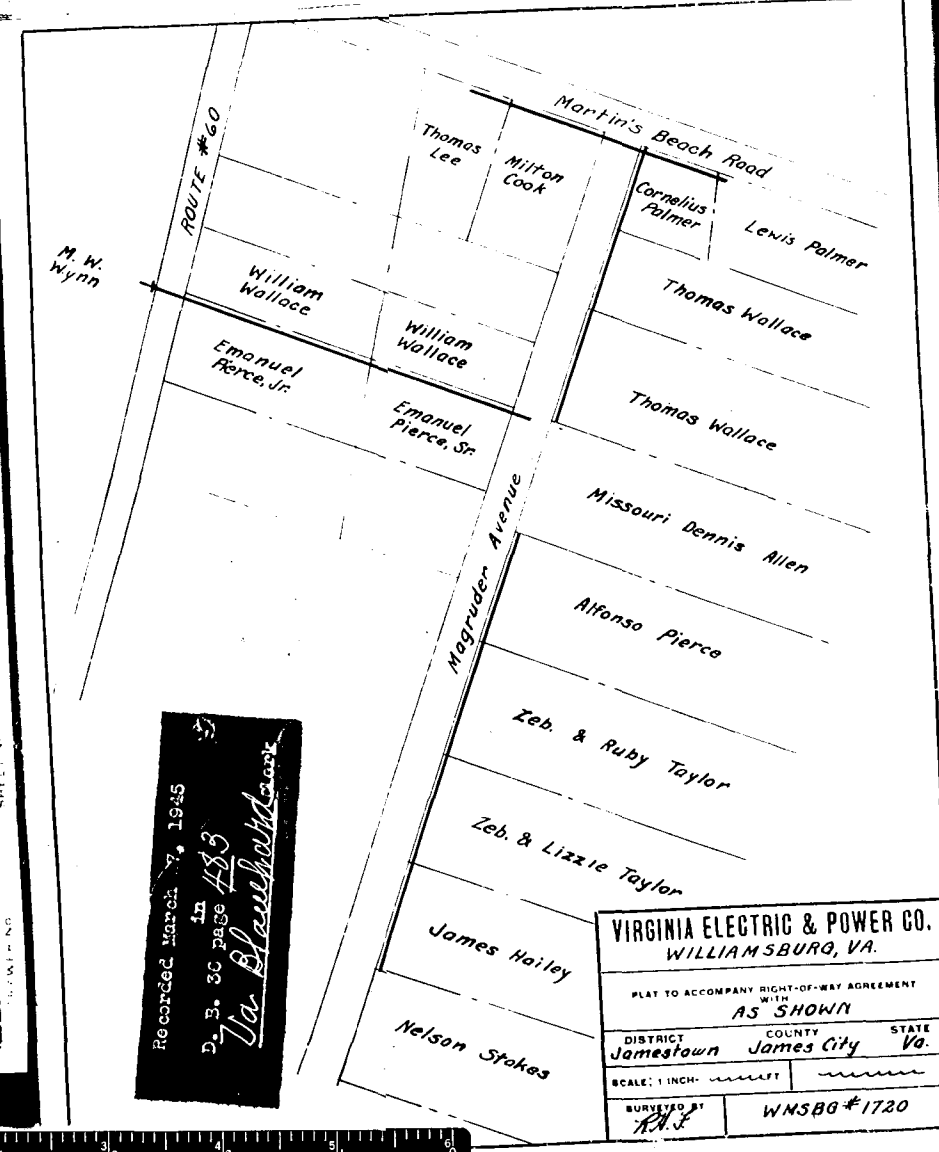 Martin's Beach Road
ROUTE #60
Thomas
Lee
Milton
Cook
Cornelius
Palmer
Lewis Palmer
M. W.
Wynn
William
Wallace
William
Wallace
Thomas Wallace
Emanuel
Pierce, Jr.
Emanuel
Pierce, Sr.
Thomas Wallace
Magruder Avenue
Missouri Dennis Allen
Alfonso Pierce
Zeb. & Ruby Taylor
Zeb. & Lizzie Taylor
James Hailey
Nelson Stokes
Recorded March 7, 1945
in
D. B. 30 page 483
VIRGINIA ELECTRIC & POWER CO.
WILLIAMSBURG, VA.
PLAT TO ACCOMPANY RIGHT-OF-WAY AGREEMENT
WITH
AS SHOWN
DISTRICT COUNTY STATE
Jamestown James City Va.
SCALE: 1 INCH- FT
SURVEYED BY
WMSBG #1720
3 4 5 6